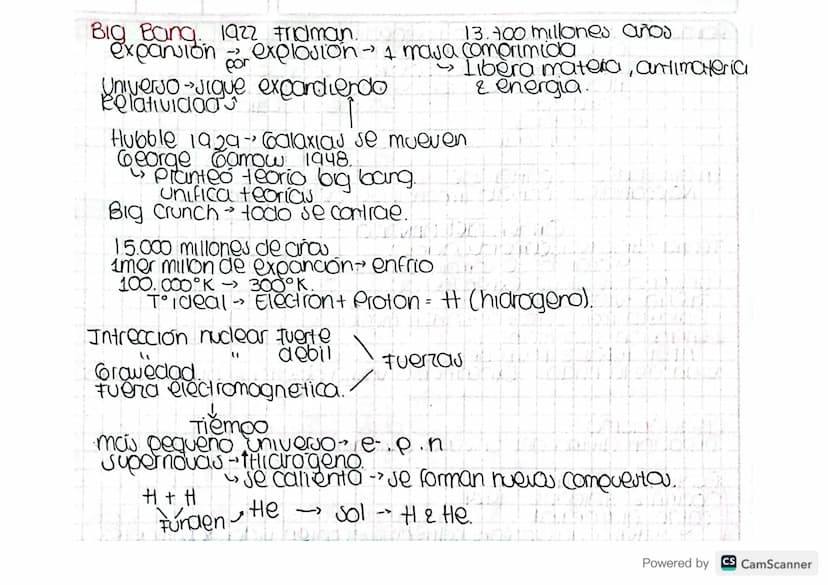 Big Bang. 1922 Fridman. 13.700 millones años
expansión → por explosión → 1 masa comprimida
↳ libera matera, antimateria
& energía.
Universo → sigue expandiendo
Relatividad
Hubble 1929 → Galaxias se mueven
George Gamow 1948.
↳ Planteó teoría big bang.
unifica teorías
Big Crunch → todo se contrae.
15.000 millones de años
1mer millon de expanción → enfrio
100.000°K → 300°K.
T° ideal → Electron + Proton = H (hidrogeno).
Intrección nuclear fuerte
" " debil
Gravedad
Fuerza electromagnetica.
Fuerzas
↓
Tiempo
más pequeño universo → e-. p. n
supernovas → ↑Hidrógeno
↳ se calienta → se forman nuevos compuestos.
H + H
Funden → He → Sol → H & He.
Powered by CS CamScanner